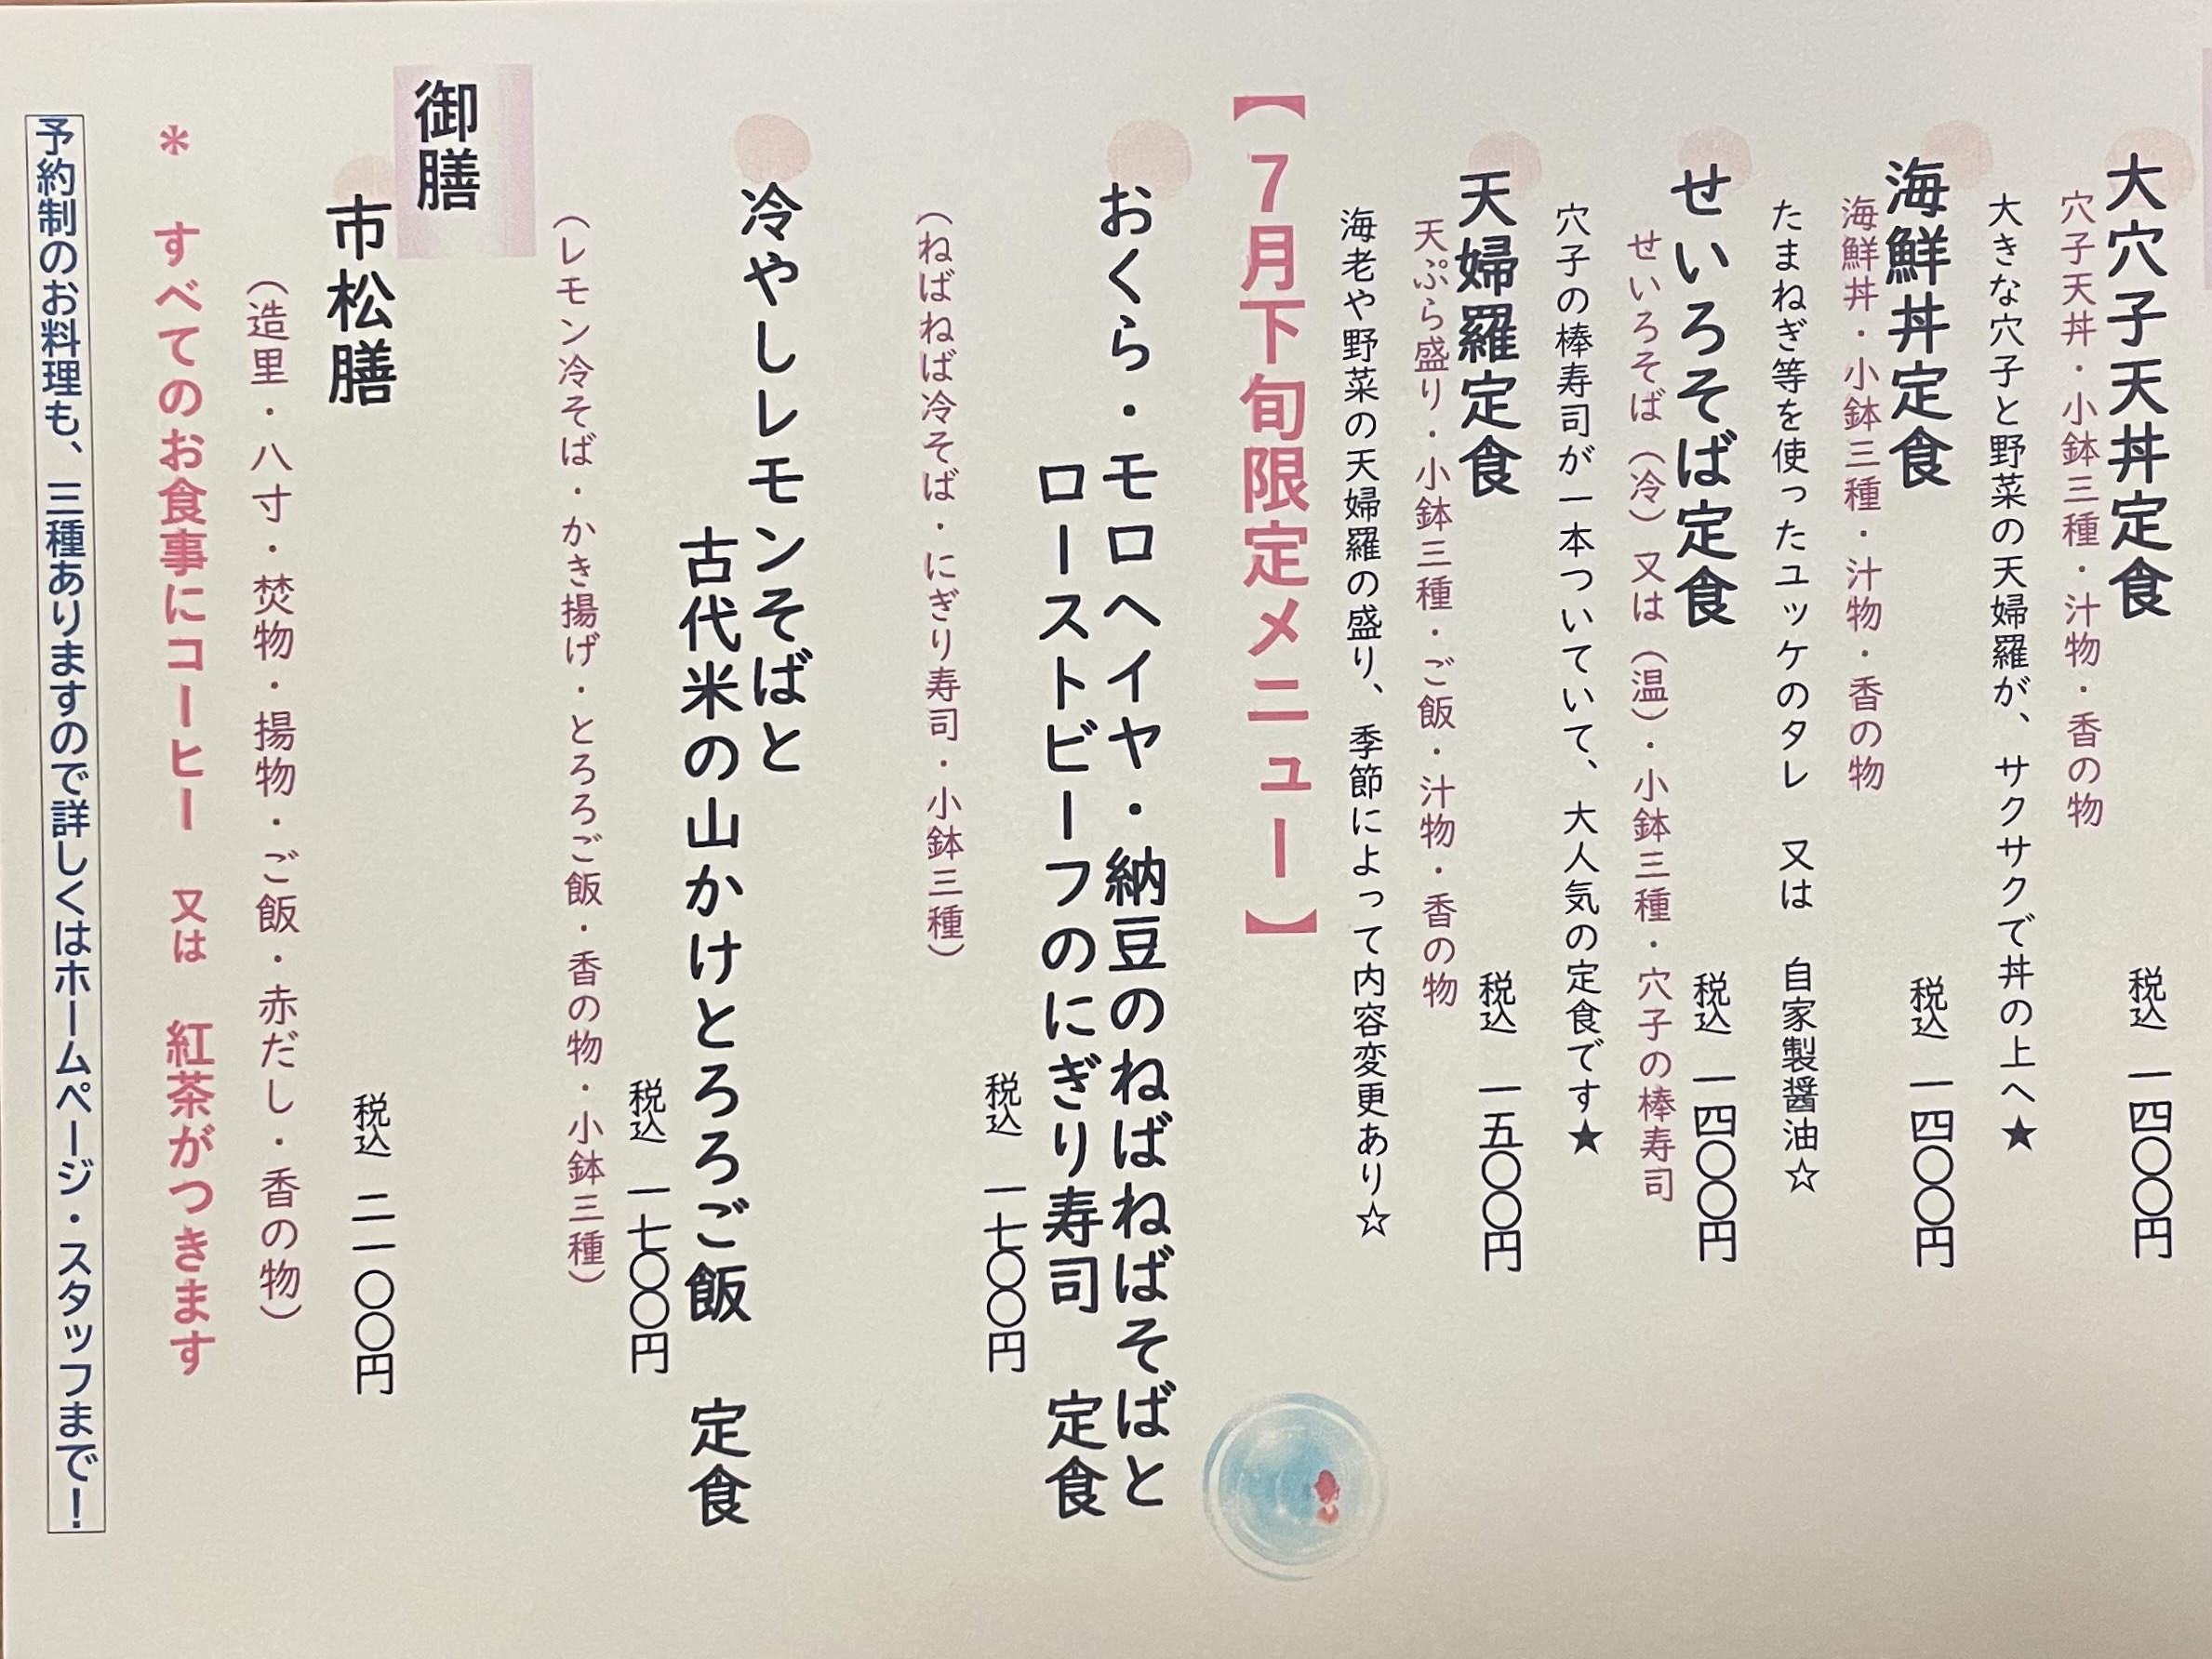 大穴子天丼定食
税込 一四〇〇円
穴子天丼・小鉢三種・汁物・香の物
大きな穴子と野菜の天婦羅が、サクサクで丼の上へ★
海鮮丼定食
税込 一四〇〇円
海鮮丼・小鉢三種・汁物・香の物
たまねぎ等を使ったユッケのタレ 又は 自家製醤油☆
せいろそば定食
税込 一四〇〇円
せいろそば（冷）又は（温）・小鉢三種・穴子の棒寿司
穴子の棒寿司が一本ついていて、大人気の定食です★
天婦羅定食
税込 一五〇〇円
天ぷら盛り・小鉢三種・ご飯・汁物・香の物
海老や野菜の天婦羅の盛り、季節によって内容変更あり☆
【7月下旬限定メニュー】
おくら・モロヘイヤ・納豆のねばねばそばと
ローストビーフのにぎり寿司 定食
税込 一七〇〇円
（ねばねば冷そば・にぎり寿司・小鉢三種）
冷やしレモンそばと
古代米の山かけとろろご飯 定食
税込 一七〇〇円
（レモン冷そば・かき揚げ・とろろご飯・香の物・小鉢三種）
御膳
市松膳
税込 二一〇〇円
（造里・八寸・焚物・揚物・ご飯・赤だし・香の物）
＊ すべてのお食事にコーヒー 又は 紅茶がつきます
予約制のお料理も、三種ありますので詳しくはホームページ・スタッフまで！